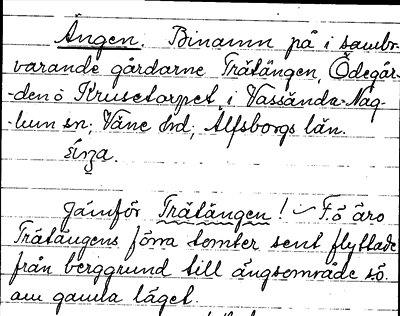 Ängen. Binamn på i sambr-
varande gårdarne Trätängen, Ödegär-
-den o Krusetorpet i Vassända-Nag-
-lum sn; Väne hd; Älfsborgs län.
Jämför Trätängen! Fö äro
Trätängens förra tomter sent flyttade
från berggrund till ängsområde sö.
om gamla läget.